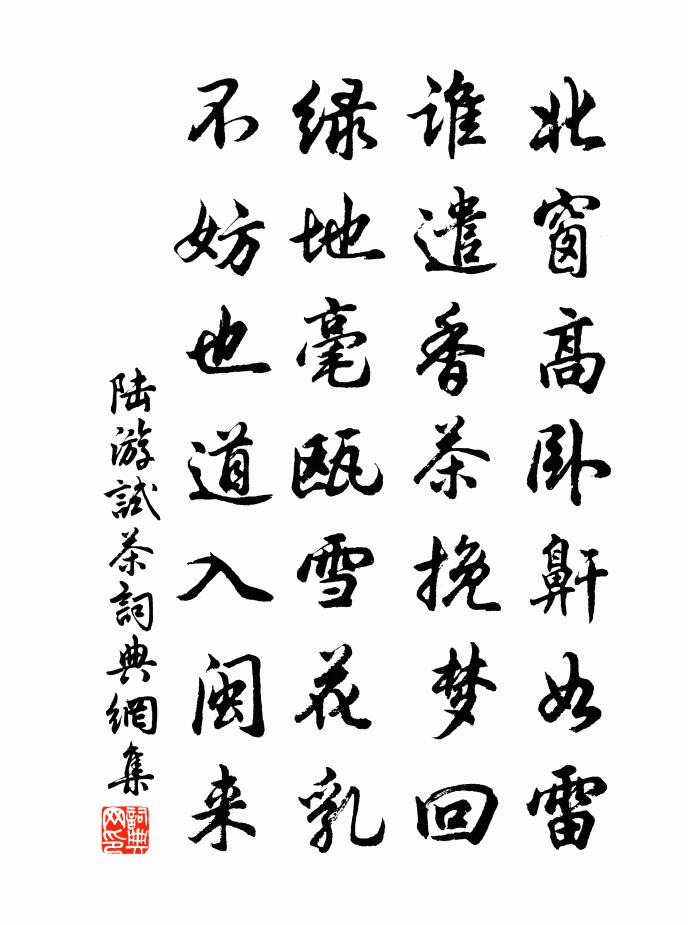 北窗高卧鼾如雷
谁遣香茶挽梦回
绿地毫瓯雪花乳
不妨也道入闽来
陆游試茶詞典網集
詞典网印